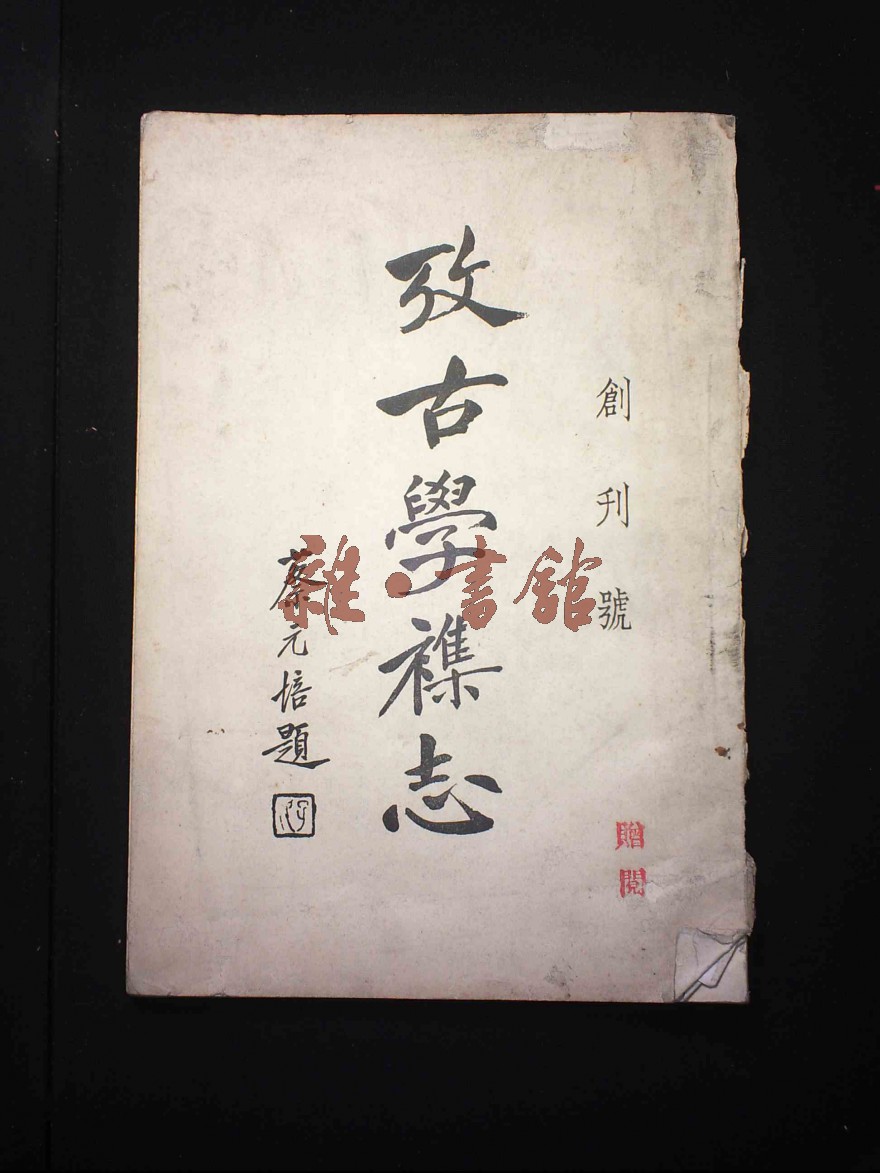 創刊號
攷古學襍志
蔡元培題
贈閱
雜·書館